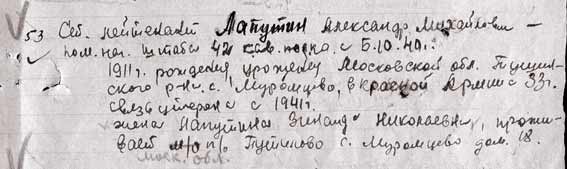 53 Ст. лейтенант Лапутин Александр Михайлович –
пом. нач. штаба 42 кав. полка с 5.10.40г.
1911г. рождения, уроженец Московской обл.
р-на, с. Муромцево, в красной Армии с 33г.
связь утеряна с 1941г.
жена Лапутина Зинаида Николаевна, прожи-
вает м/о п/о с. Муромцево дом. 18.
моск. обл.